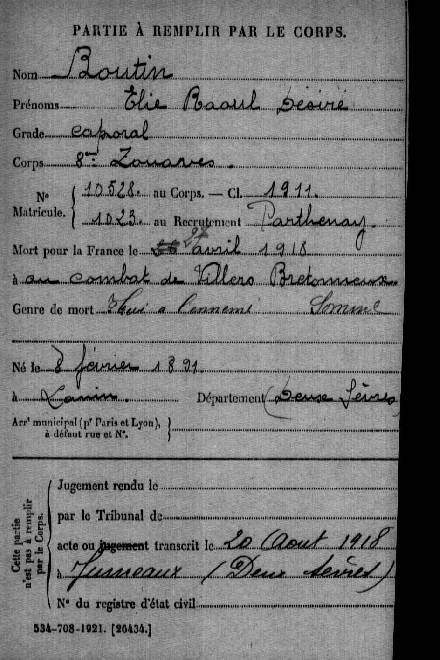 PARTIE À REMPLIR PAR LE CORPS.
Nom Boutin
Prénoms Elie Raoul Désiré
Grade caporal
Corps 8me Zouaves.
N° Matricule. { 10528. au Corps. — Cl. 1911.
1023. au Recrutement Parthenay.
Mort pour la France le avril 1918
à au combat de Villers Bretonneux
Genre de mort Tué à l'ennemi Somme
Né le 8 février 1891
à Département Deux Sèvres
Arrt municipal (pr Paris et Lyon), à défaut rue et N°.
Cette partie n'est pas à remplir par le Corps.
Jugement rendu le
par le Tribunal de
acte ou jugement transcrit le 20 Aout 1918
à (Deux Sèvres)
N° du registre d'état civil
534-708-1921. [26434.]